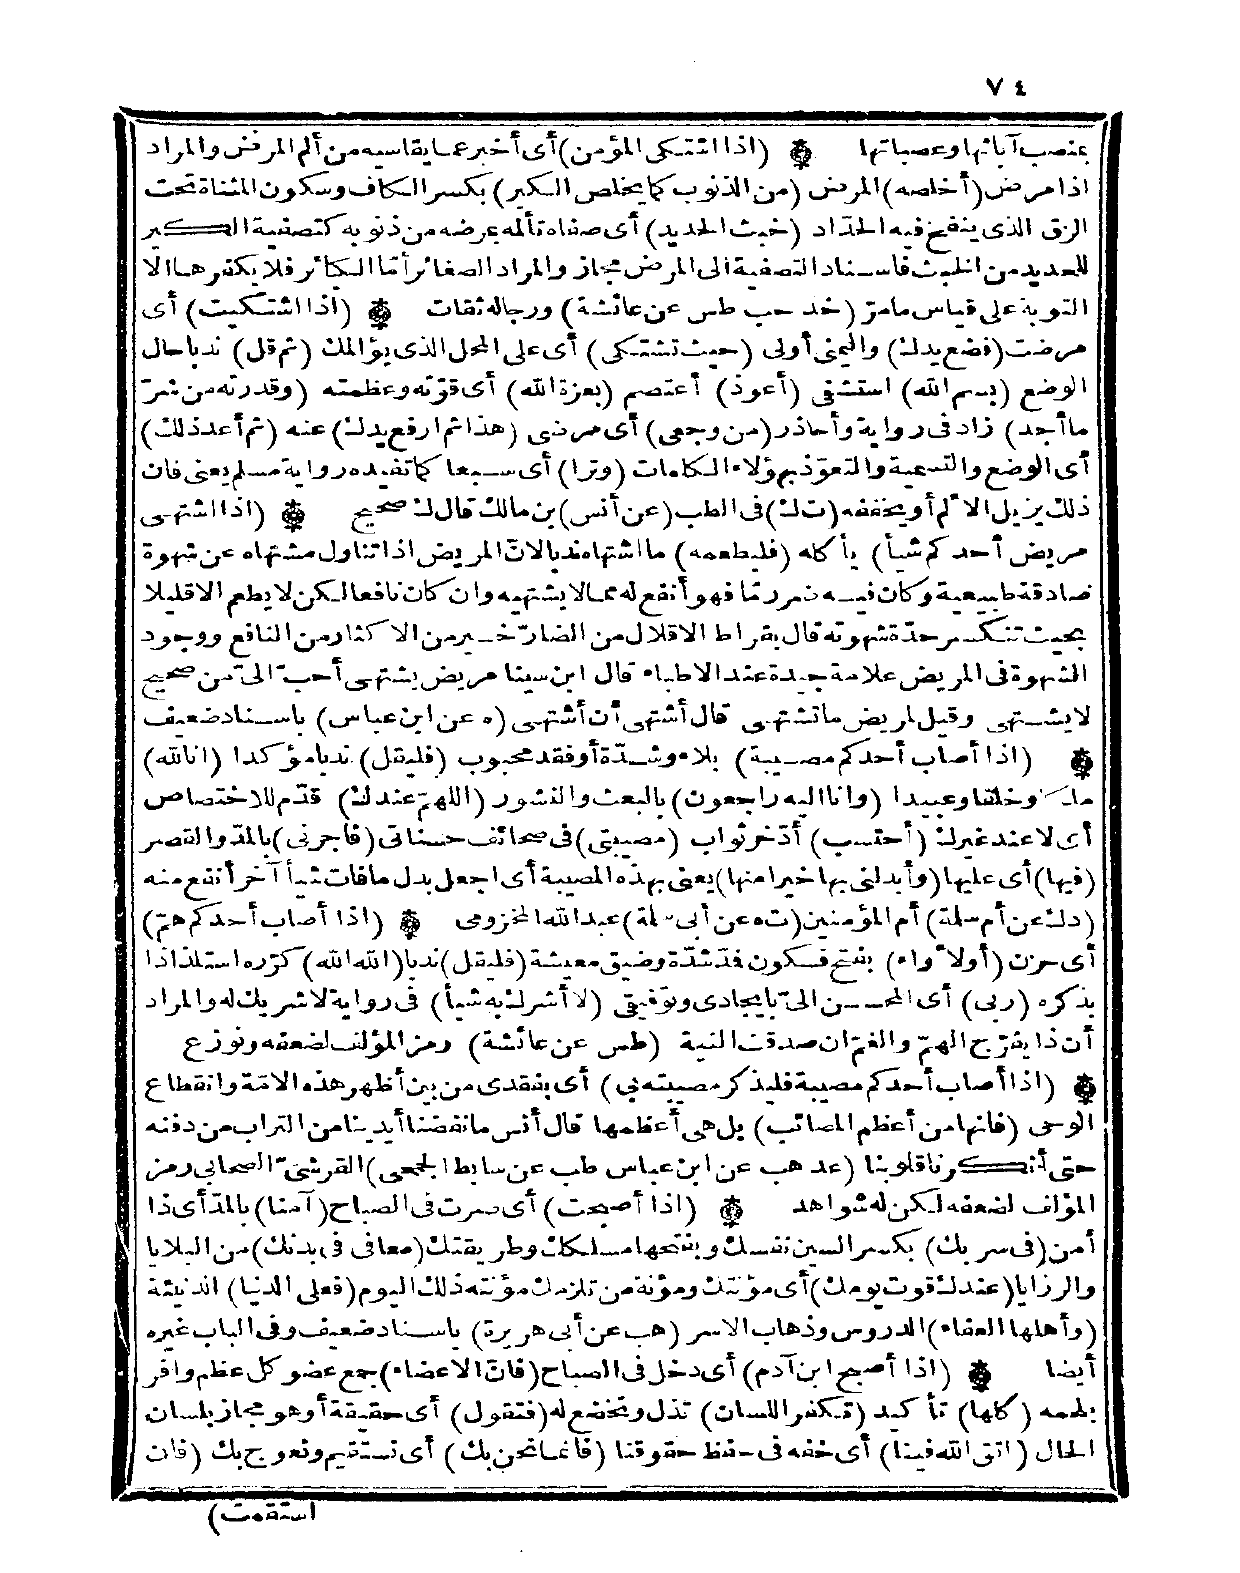 ٧٤
بمنصب آبائها وعصباتها (اذا اشتكى المؤمن) أى أخبر عما يقاسيه من ألم المرض والمراد
اذا مرض (أخلصه) المرض (من الذنوب كما يخلص الكير) بكسر الكاف وسكون المثناة تحت
الزق الذى ينفخ فيه الحدّاد (خبث الحديد) أى صفاه تألمه بمرضه من ذنوبه كتصفية الكير
للحديد من الخبث فاسناد التصفية الى المرض مجاز والمراد الصغائر أمّا الكائر فلا يكفرها الا
التوبة على قياس مامرّ (خد حب طس عن عائشة) ورجاله ثقات (اذا اشتكيت) أى
مرضت (فضع يدك) واليمنى أولى (حيث تشتكى) أى على المحل الذى يؤالمك (ثم قل) ندبا حال
الوضع (بسم الله) استشفى (أعوذ) أعتصم (بعزة الله) أى قوّته وعظمته (وقدرته من شرّ
ما أجد) زاد فى رواية وأحاذر (من وجعى) أى مرضى (هذا ثم ارفع يدك) عنه (ثم أعد ذلك)
أى الوضع والتسمية والتعوّذ بهؤلاء الكلمات (وترا) أى سبعا كما تفيده رواية مسلم يعنى فان
ذلك يزيل الالم أو يخففه (ت ك) فى الطب (عن أنس) بن مالك قال ك صحيح (اذا اشتهى
مريض أحدكم شيأ) يأكله (فليطعمه) ما اشتهاه ندبا لانّ المريض اذا تناول مشتهاه عن شهوة
صادقة طبيعية وكان فيه ضرر مّا فهو أنفع له مما لا يشتهيه وان كان نافعا لكن لا يطعم الا قليلا
بحيث تنكسر حدّة شهوته قال بقراط الاقلال من الضارّ خير من الاكثار من النافع ووجود
الشهوة فى المريض علامة جيدة عند الاطباء قال ابن سينا مريض يشتهى أحبّ الىّ من صحيح
لا يشتهى وقيل لمريض ما تشتهى قال أشتهى أن أشتهى (ه عن ابن عباس) باسناد ضعيف
(اذا أصاب أحدكم مصيبة) بلاء وشدّة أو فقد محبوب (فليقل) ندبا مؤكدا (انا لله)
ملكا وخلقا وعبيدا (وانا اليه راجعون) بالبعث والنشور (اللهمّ عندك) قدّم للاختصاص
أى لا عند غيرك (أحتسب) أدّخر ثواب (مصيبتى) فى صحائف حسناتى (فاجرنى) بالمدّ والقصر
(فيها) أى عليها (وأبدلنى بها خيرا منها) يعنى بهذه المصيبة أى اجعل بدل ما فات شيأ آخر أنفع منه
(د ك عن أم سلمة) أم المؤمنين (ت ه عن أبى سلمة) عبد الله المخزومى (اذا أصاب أحدكم همّ)
أى حزن (أو لأواء) بفتح فسكون فمدّ شدّة وضيق معيشة (فليقل) ندبا (الله الله) كرّره استلذاذا
بذكره (ربى) أى المحسن الىّ بايجادى وتوفيقى (لا أشرك به شيأ) فى رواية لا شريك له والمراد
أن ذا يفرّج الهمّ والغم ان صدقت النية (طس عن عائشة) رمز المؤلف لضعفه ونوزع
(اذا أصاب أحدكم مصيبة فليذكر مصيبته بى) أى بفقدى من بين أظهر هذه الامّة وانقطاع
الوحى (فانها من أعظم المصائب) بل هى أعظمها قال أنس ما نفضنا أيدينا من التراب من دفنه
حتى أنكرنا قلوبنا (عد هب عن ابن عباس طب عن سابط الجمحى) القرشىّ الصحابى رمز
المؤلف لضعفه لكن له شواهد (اذا أصبحت) أى صرت فى الصباح (آمنا) بالمدّ أى ذا
أمن (فى سربك) بكسر السين نفسك وبفتحها مسلكك وطريقتك (معافى فى بدنك) من البلايا
والرزايا (عندك قوت يومك) أى مؤنتك ومؤنة من تلزمك مؤنته ذلك اليوم (فعلى الدنيا) الدنيئة
(وأهلها العفاء) الدروس وذهاب الاسر (هب عن أبى هريرة) باسناد ضعيف وفى الباب غيره
أيضا (اذا أصبح ابن آدم) أى دخل فى الصباح (فانّ الاعضاء) جمع عضو كل عظم وافر
بلحمه (كلها) تأكيد (تكفر اللسان) تذل وتخضع له (فتقول) أى حقيقة أو هو مجاز بلسان
الحال (اتق الله فينا) أى خفه فى حفظ حقوقنا (فانما نحن بك) أى نستقيم ونعوج بك (فان
استقمت)